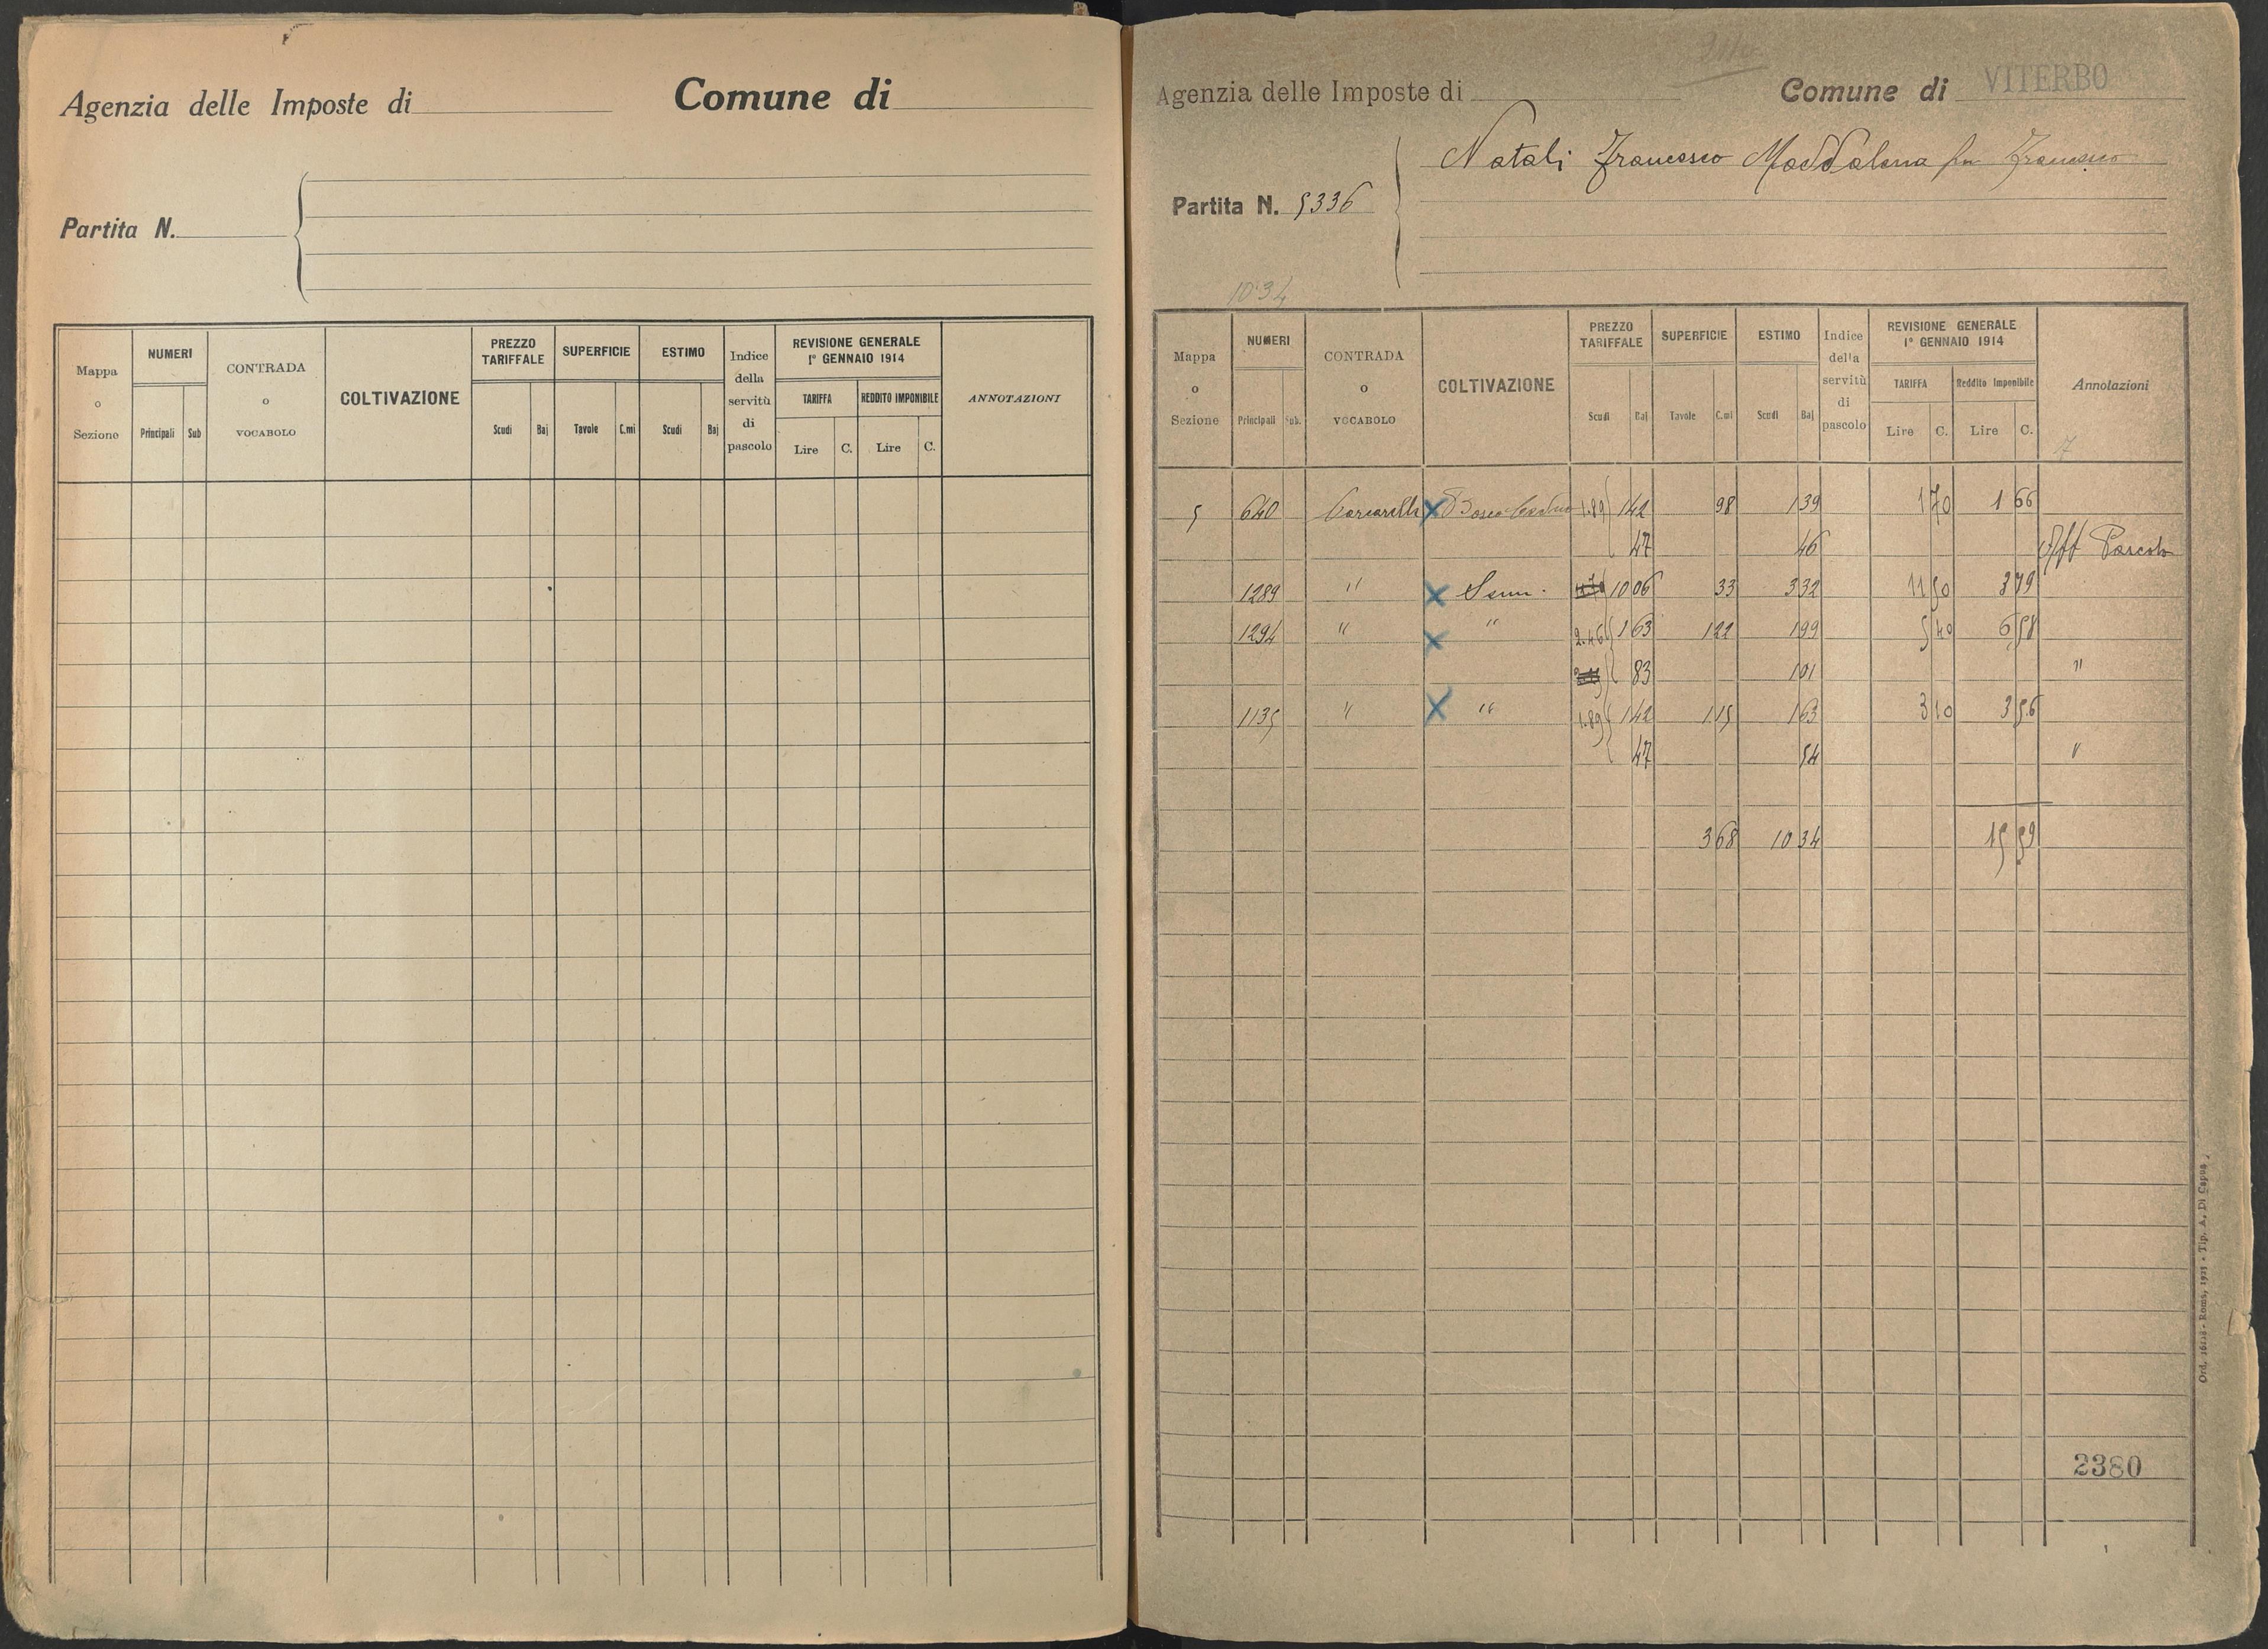 Agenzia delle Imposte di Comune di
Partita N.
Mappa o Sezione NUMERI Principali Sub CONTRADA o VOCABOLO COLTIVAZIONE PREZZO TARIFFALE Scudi Baj SUPERFICIE Tavole C.mi ESTIMO Scudi Baj Indice della servitù di pascolo REVISIONE GENERALE 1° GENNAIO 1914 TARIFFA Lire C. REDDITO IMPONIBILE Lire C. ANNOTAZIONI
Agenzia delle Imposte di Comune di VITERBO
Natali Francesco Maddalena fu Francesco
Partita N. 5336
1034
Mappa o Sezione NUMERI Principali Sub. CONTRADA o VOCABOLO COLTIVAZIONE PREZZO TARIFFALE Scudi Baj SUPERFICIE Tavole C.mi ESTIMO Scudi Baj Indice della servitù di pascolo REVISIONE GENERALE 1° GENNAIO 1914 TARIFFA Lire C. Reddito Imponibile Lire C. Annotazioni
5 640 X Bosco Ceduo 1.89 1 42 98 1 39 1 70 1 66
47 46 Aff Pascolo
1289 " X Sem. 10 06 33 3 32 11 50 3 79
1294 " X " 2.46 1 63 1 22 1 99 5 40 6 58
83 1 01 "
1135 " X " 1.89 1 42 1 15 1 63 3 10 3 56
47 54 "
3 68 10 34 15 59
2380
Ord. 16618 - Roma, 1925 - Tip. A. Di Capua